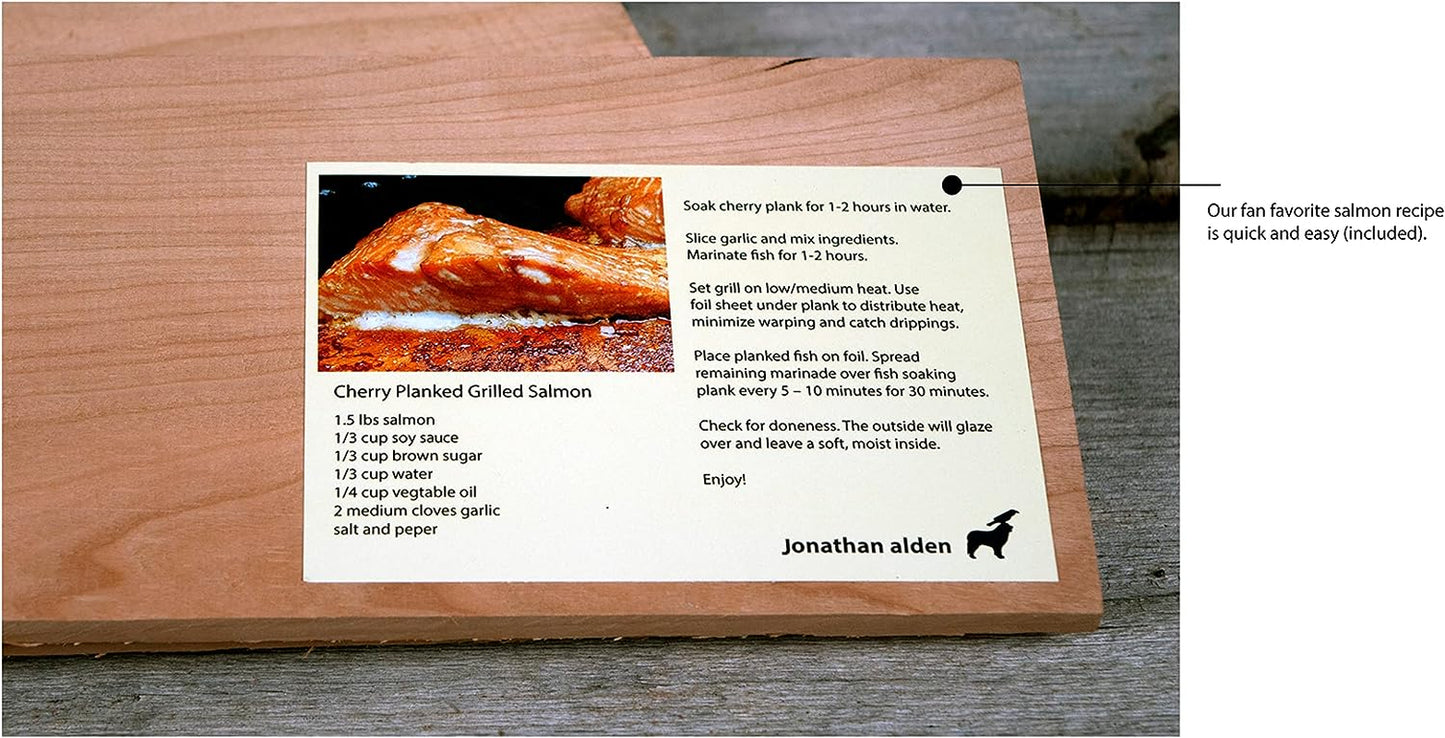 Soak cherry plank for 1-2 hours in water.
Slice garlic and mix ingredients.
Marinate fish for 1-2 hours.
Set grill on low/medium heat. Use
foil sheet under plank to distribute heat,
minimize warping and catch drippings.
Place planked fish on foil. Spread
remaining marinade over fish soaking
plank every 5 – 10 minutes for 30 minutes.
Check for doneness. The outside will glaze
over and leave a soft, moist inside.
Enjoy!
Cherry Planked Grilled Salmon
1.5 lbs salmon
1/3 cup soy sauce
1/3 cup brown sugar
1/3 cup water
1/4 cup vegtable oil
2 medium cloves garlic
salt and peper
Jonathan alden
Our fan favorite salmon recipe
is quick and easy (included).